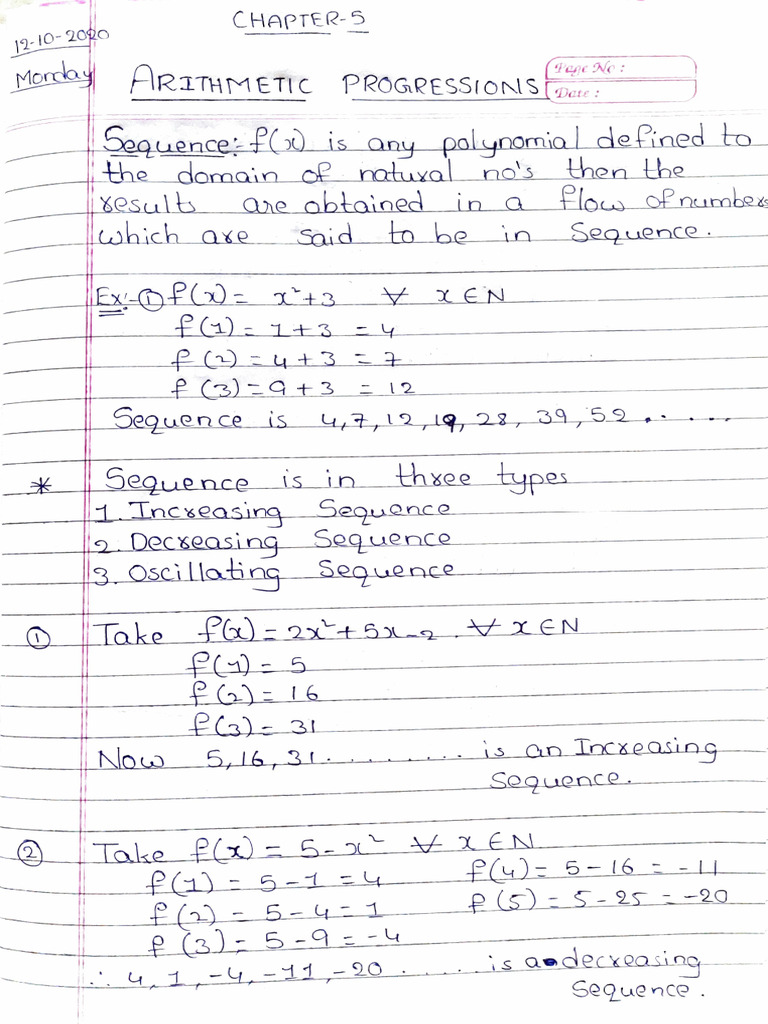 CHAPTER-5
12-10-2020
Monday
ARITHMETIC PROGRESSIONS
Page No :
Date :
Sequence:- f(x) is any polynomial defined to
the domain of natural no's then the
results are obtained in a flow of numbers
which are said to be in Sequence.
Ex:-① f(x) = x²+3 ∀ x∈N
f(1) = 1+3 = 4
f(2) = 4+3 = 7
f(3) = 9+3 = 12
Sequence is 4,7,12,19,28,39,52.......
* Sequence is in three types
1. Increasing Sequence
2. Decreasing Sequence
3. Oscillating Sequence
① Take f(x) = 2x²+5x-2. ∀ x∈N
f(1) = 5
f(2) = 16
f(3) = 31
Now 5,16,31.......... is an Increasing
Sequence.
② Take f(x) = 5-x² ∀ x∈N
f(1) = 5-1 = 4 f(4) = 5-16 = -11
f(2) = 5-4 = 1 f(5) = 5-25 = -20
f(3) = 5-9 = -4
∴ 4,1,-4,-11,-20....... is a decreasing
Sequence.